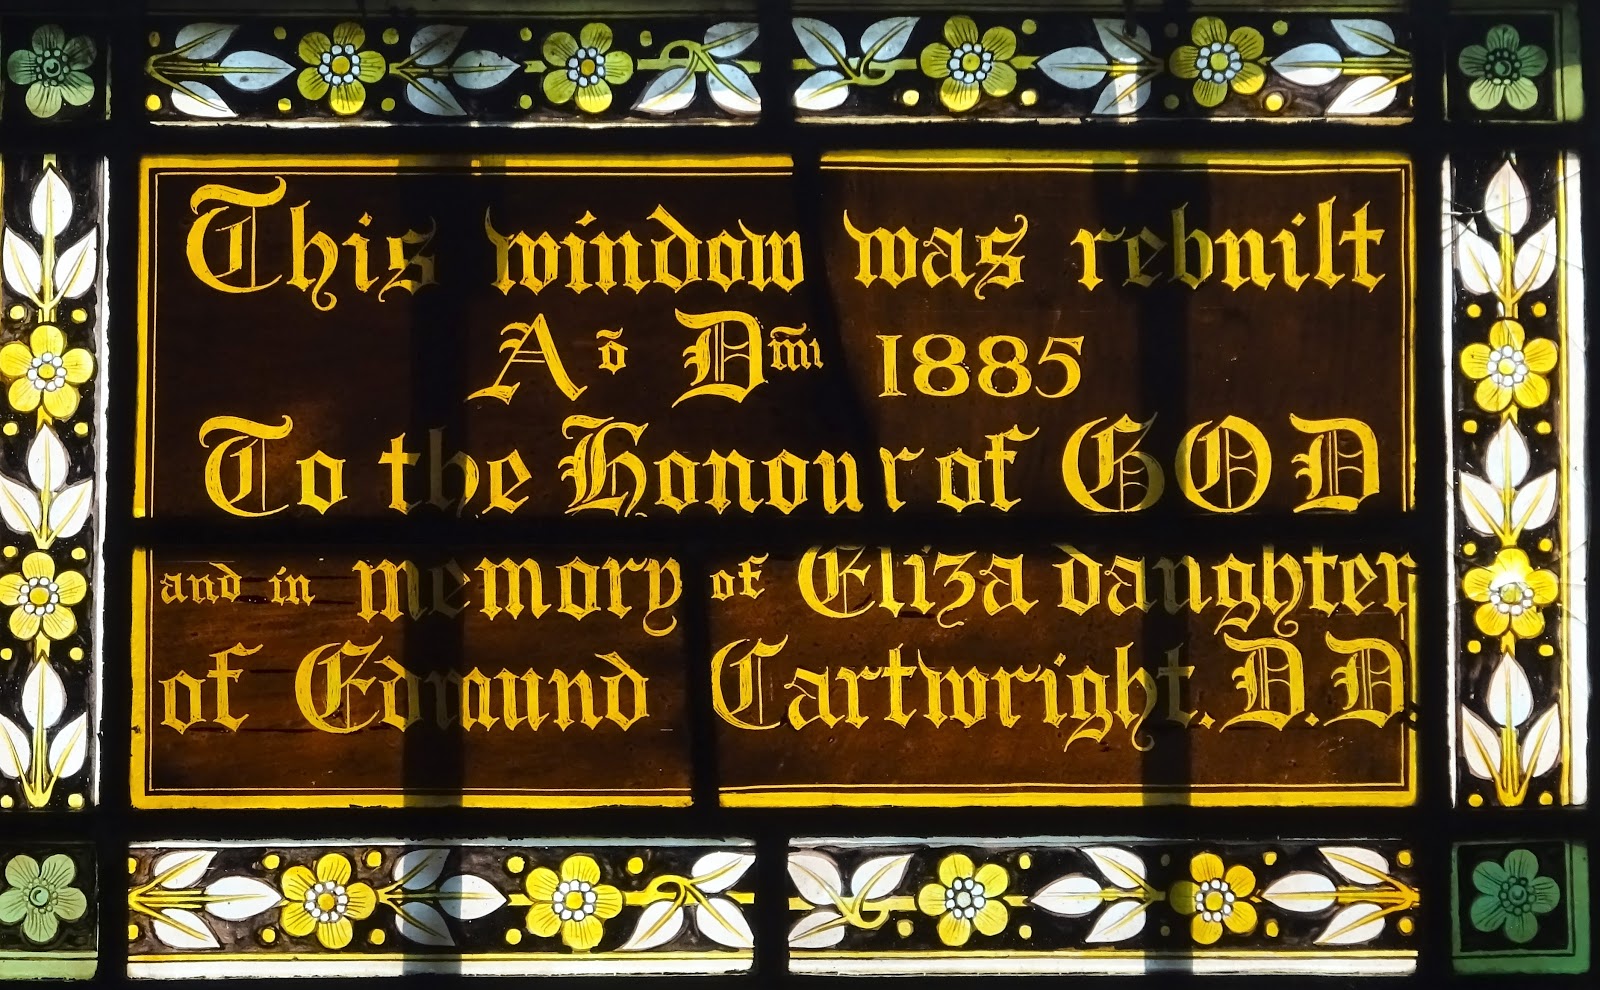 This window was rebuilt
Aõ Dm̃i 1885
To the Honour of GOD
and in memory of Eliza daughter
of Edmund Cartwright. D.D.